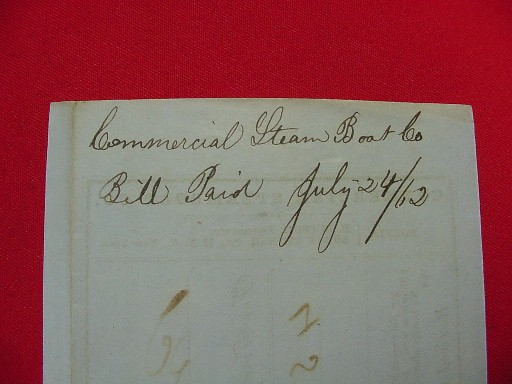 Commercial Steam Boat Co
Bill Paid July 24/62